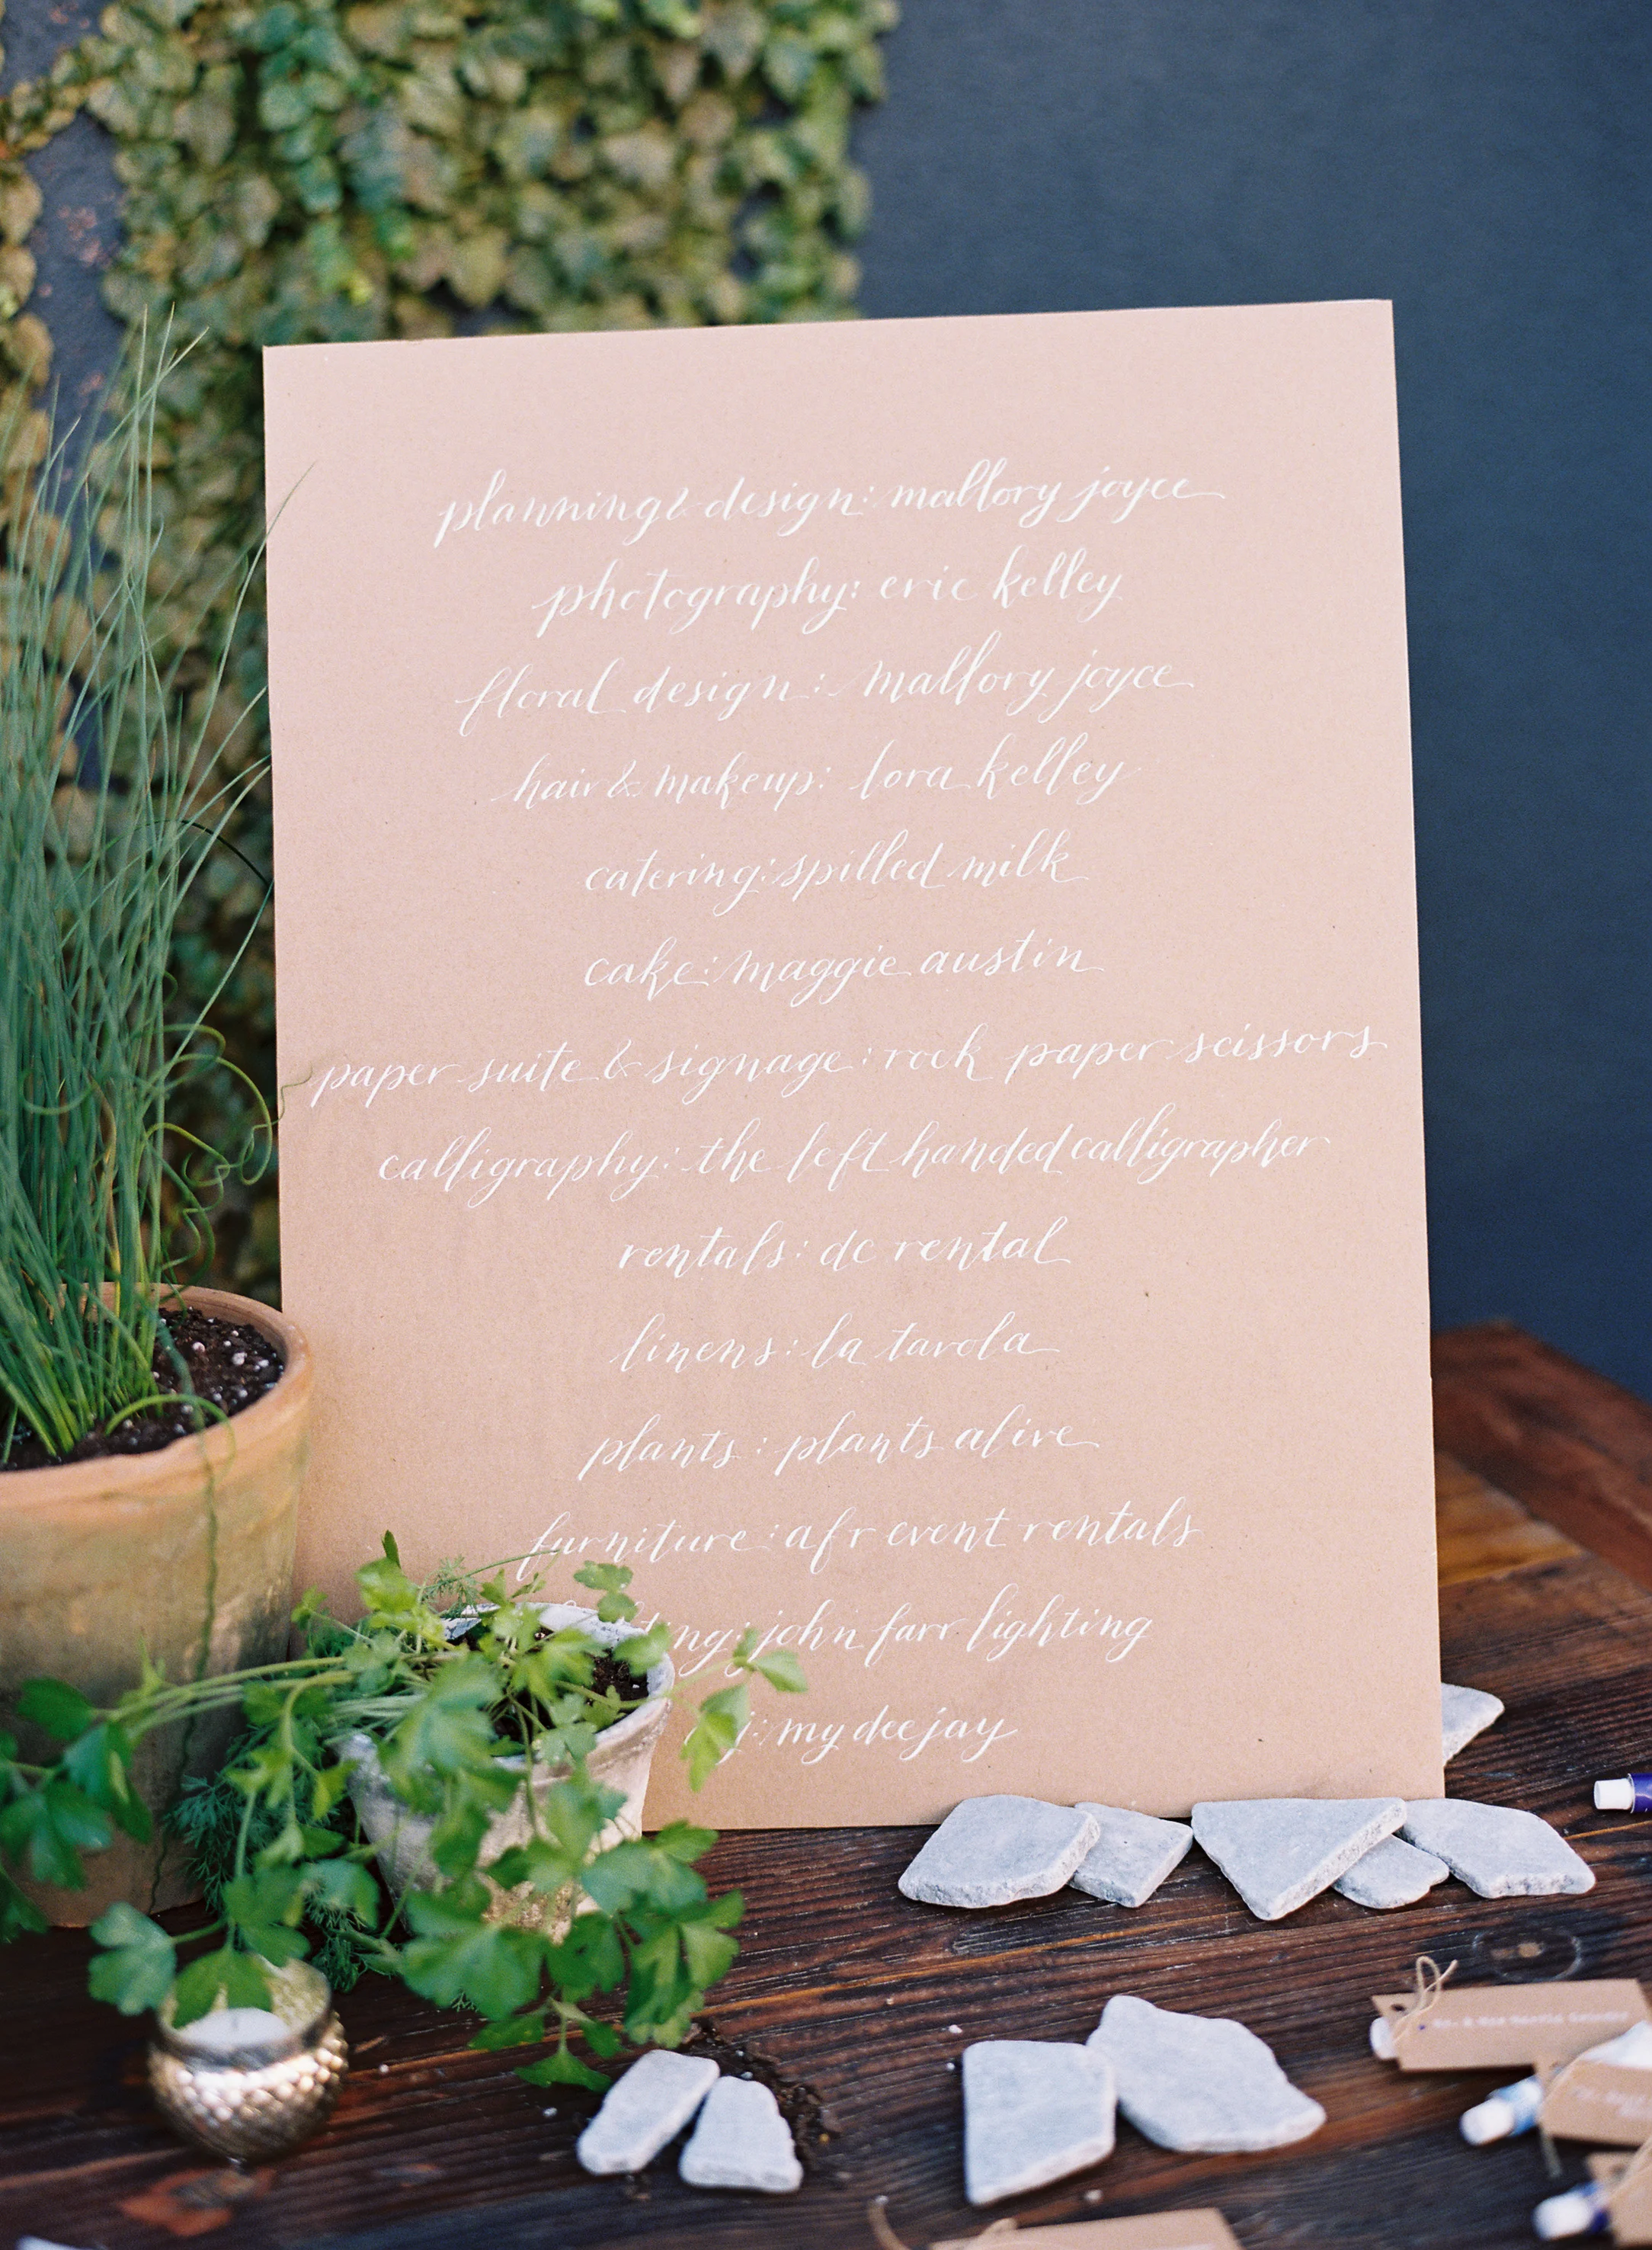 planning & design: mallory joyce
photography: eric kelley
floral design: mallory joyce
hair & makeup: lora kelley
catering: spilled milk
cake: maggie austin
paper suite & signage: rock paper scissors
calligraphy: the left handed calligrapher
rentals: dc rental
linens: la tavola
plants: plants alive
furniture: afr event rentals
john farr lighting
my deejay